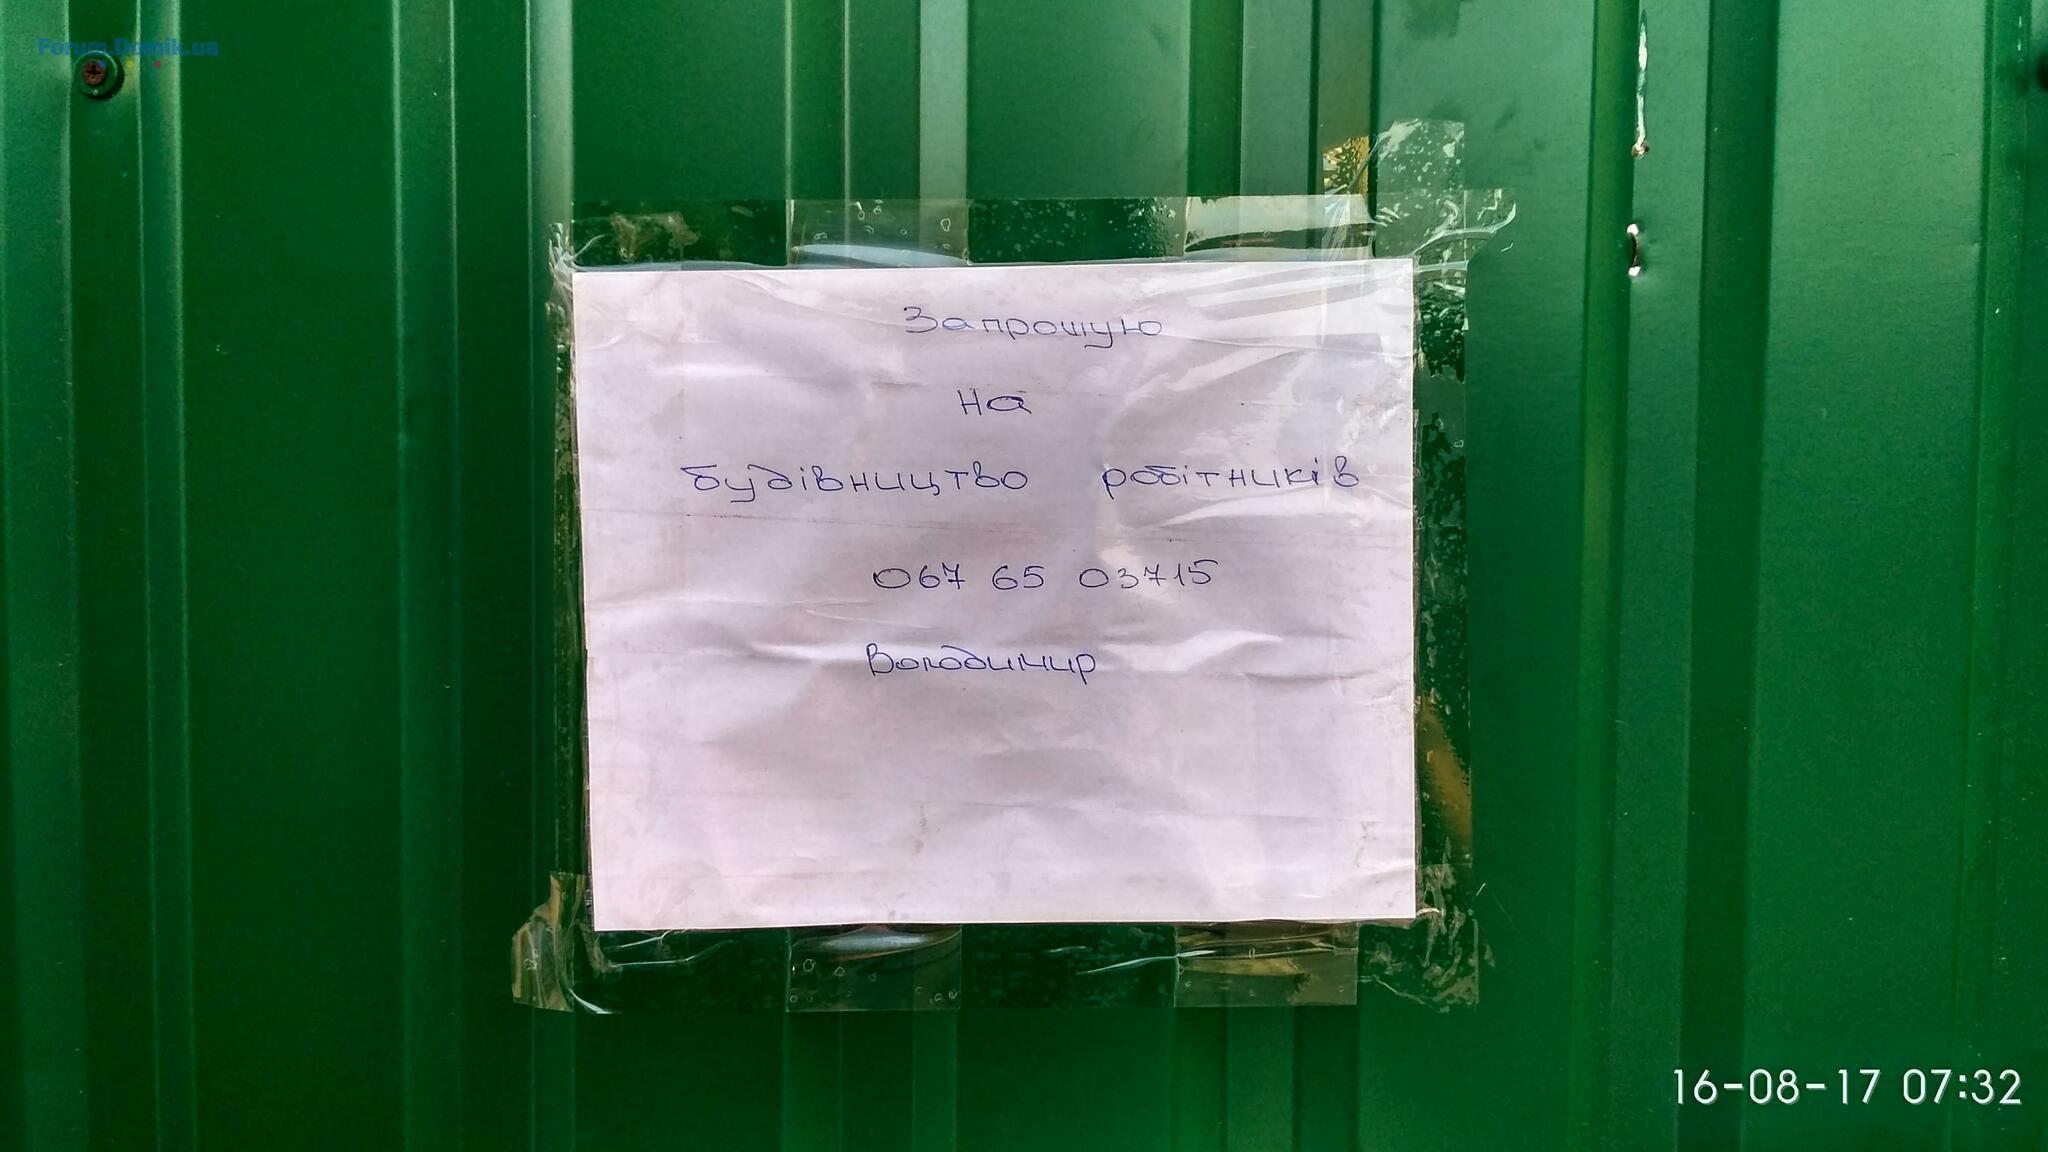 Forum.Domik.ua
Запрошую
на
будівництво робітників
067 65 03715
Володимир
16-08-17 07:32